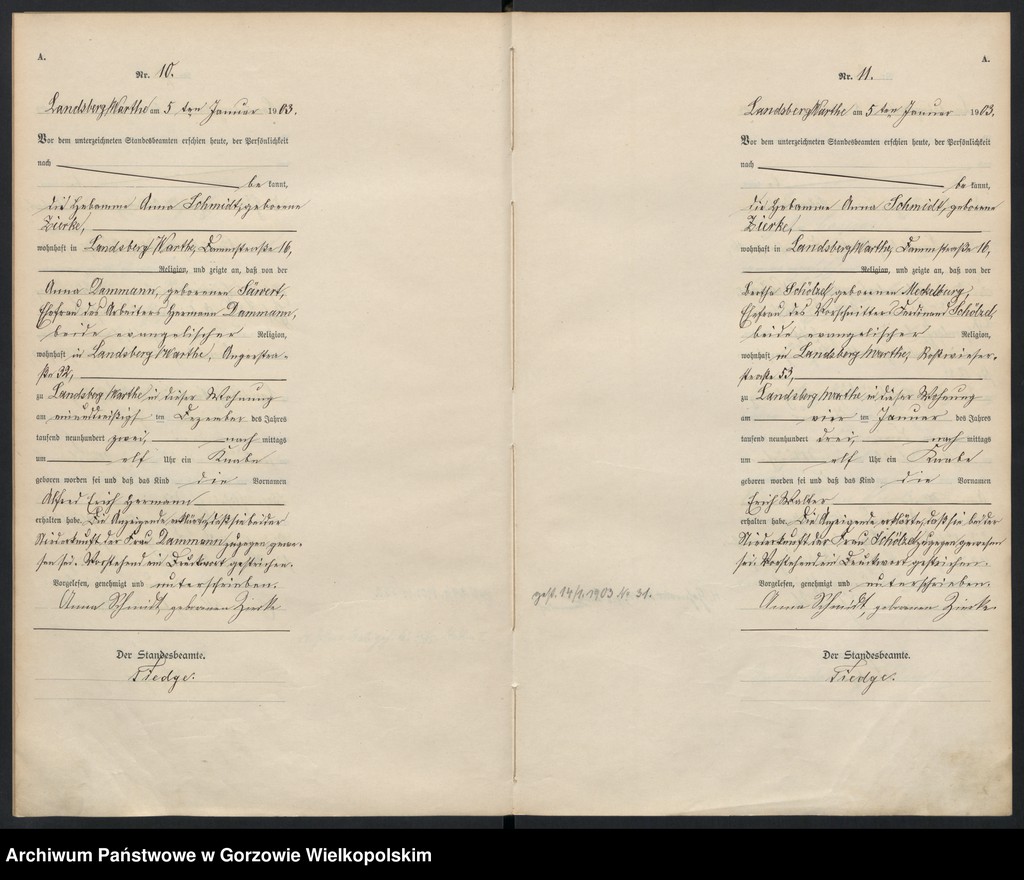 A.
Nr. 10.
Landsberg/Warthe am 5 ten Januar 1903.
Vor dem unterzeichneten Standesbeamten erschien heute, der Persönlichkeit
nach
be kannt,
die Hebamme Anna Schmidt, geborene
Zierke,
wohnhaft in Landsberg/Warthe, Dammstraße 16,
Religion, und zeigte an, daß von der
Anna Dammann, geborenen Säwert,
Ehefrau des Arbeiters Hermann Dammann,
beide evangelischer Religion,
wohnhaft in Landsberg/Warthe, Angerstra-
ße 32,
zu Landsberg/Warthe in dieser Wohnung
am einunddreißigsten Dezember des Jahres
tausend neunhundert zwei, nach mittags
um elf Uhr ein Knabe
geboren worden sei und daß das Kind die Vornamen
Alfred Erich Hermann
erhalten habe. Die Anzeigende erklärte, daß sie bei der
Niederkunft der Frau Dammann zugegen gewe-
sen sei. Vorstehend ein Druckwort gestrichen.
Vorgelesen, genehmigt und unterschrieben.
Anna Schmidt, geborenen Zierke
Der Standesbeamte.
Tiedge.
A.
Nr. 11.
Landsberg/Warthe am 5 ten Januar 1903.
Vor dem unterzeichneten Standesbeamten erschien heute, der Persönlichkeit
nach
be kannt,
die Hebamme Anna Schmidt, geborene
Zierke,
wohnhaft in Landsberg/Warthe, Dammstraße 16,
Religion, und zeigte an, daß von der
Bertha Schölzel geborenen Mecklburg,
Ehefrau des Vorschnitters Ferdinand Schölzel
beide evangelischer Religion,
wohnhaft in Landsberg/Warthe, Roßwieser-
straße 53,
zu Landsberg/Warthe in dieser Wohnung
am vier ten Januar des Jahres
tausend neunhundert drei, nach mittags
um elf Uhr ein Knabe
geboren worden sei und daß das Kind die Vornamen
Erich Walter
erhalten habe. Die Anzeigende erklärte, daß sie bei der
Niederkunft der Frau Schölzel zugegen gewesen
sei. Vorstehend ein Druckwort gestrichen.
Vorgelesen, genehmigt und unterschrieben.
Anna Schmidt, geborenen Zierke.
Der Standesbeamte.
Tiedge.
gest. 14/1. 1903 Nr. 31.
Archiwum Państwowe w Gorzowie Wielkopolskim